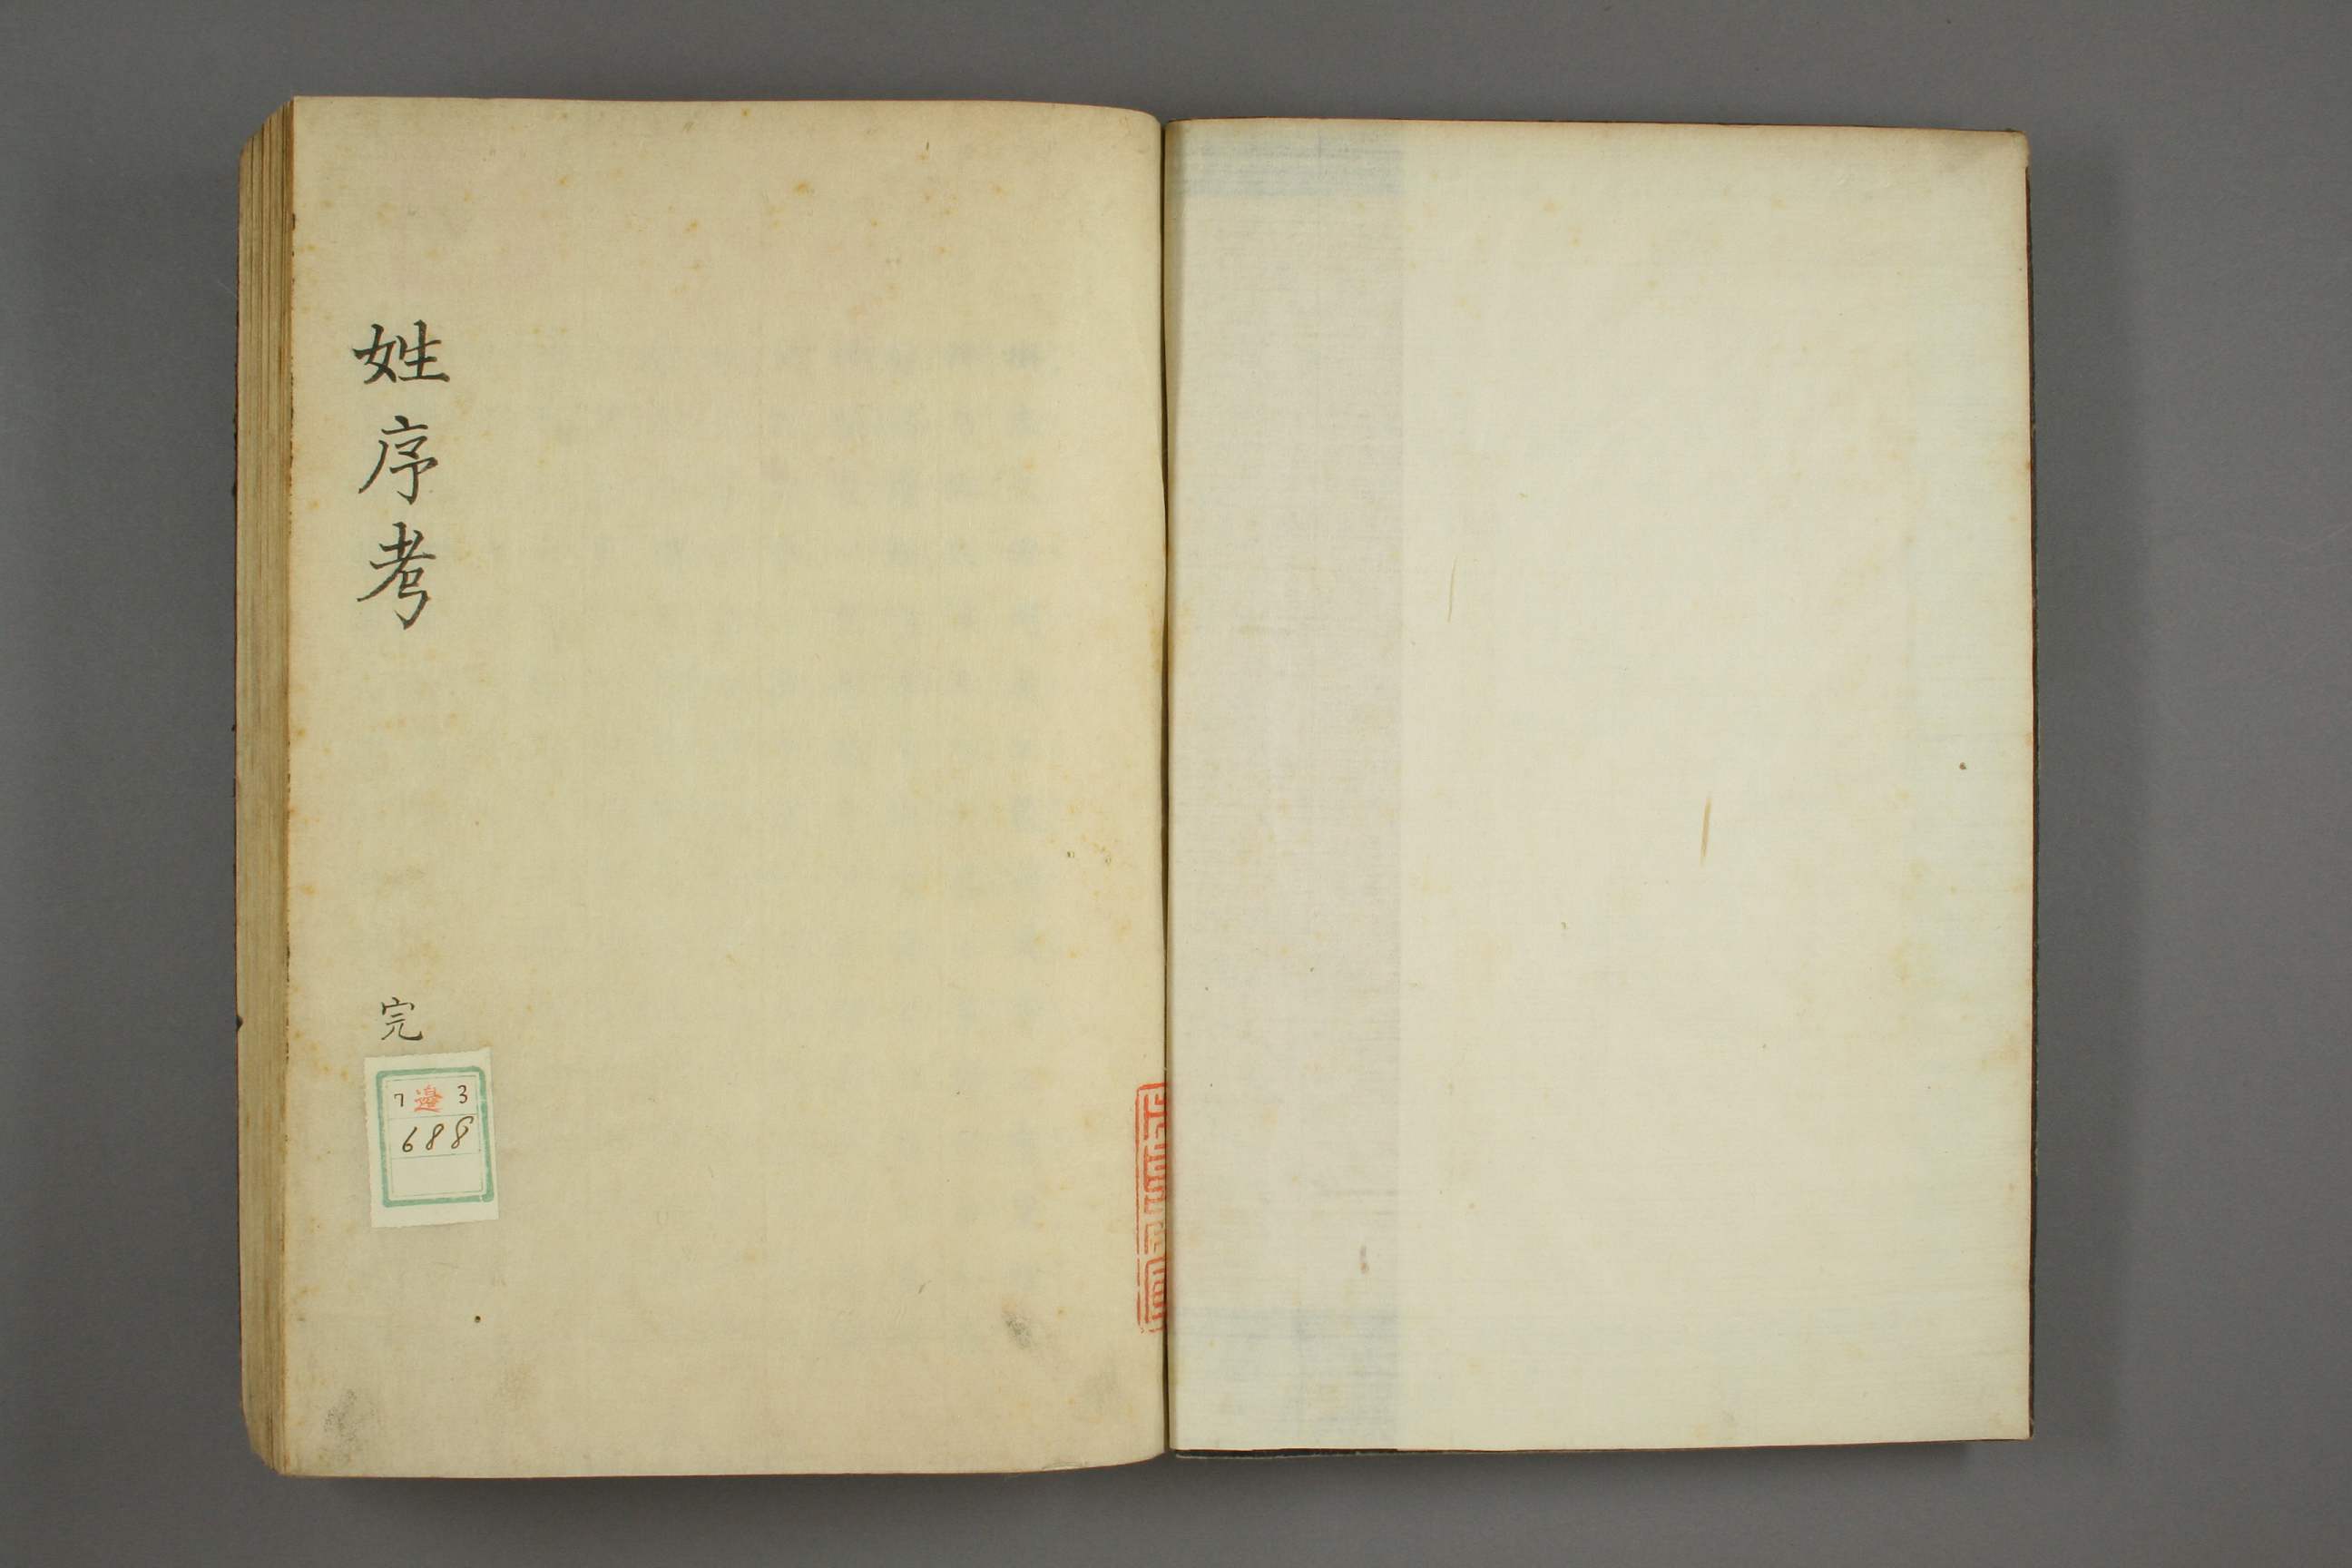 姓序考
完
7 邉 3
688